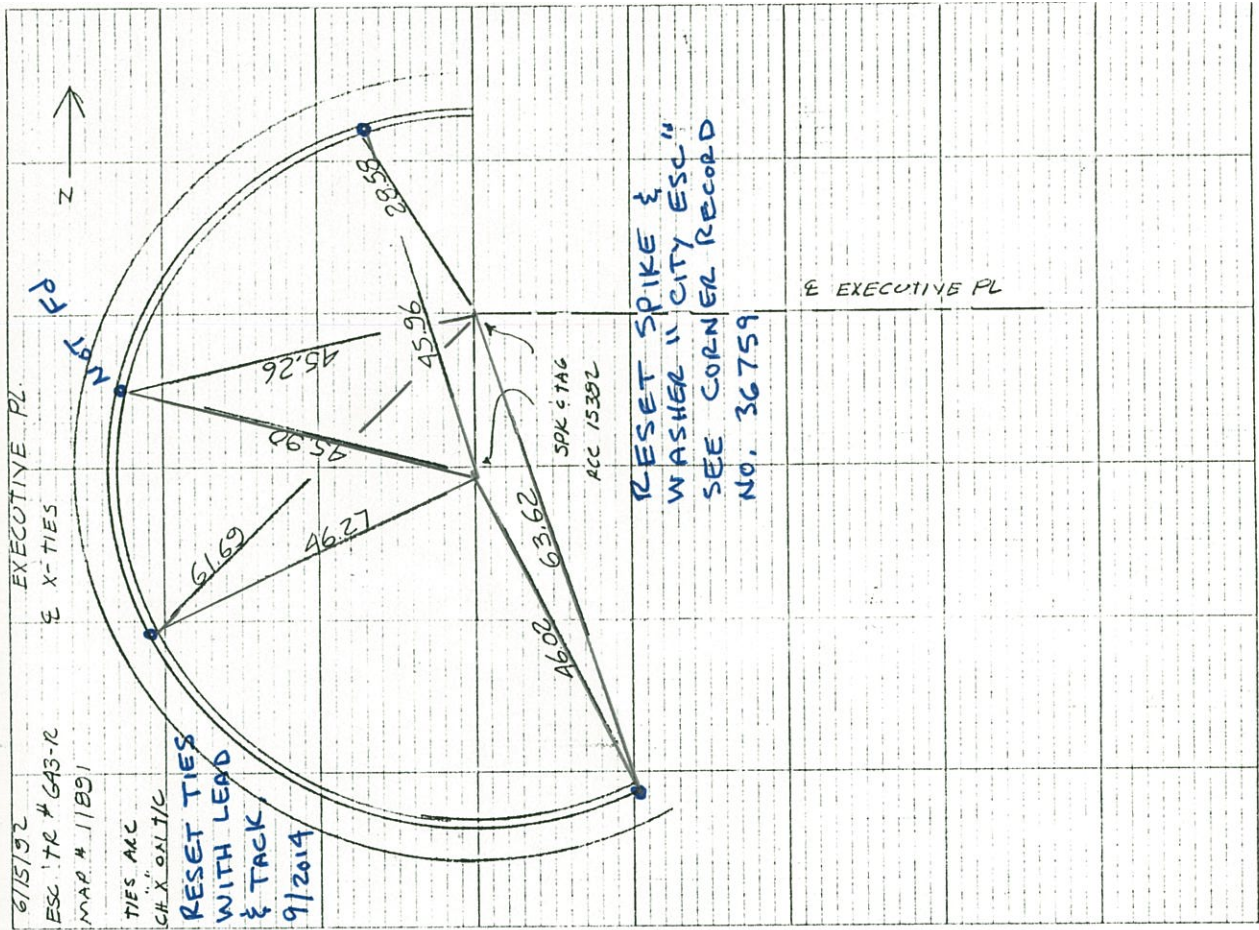 6/15/92
ESC TR # 643-R
MAP # 11891
EXECUTIVE PL.
℄ X-TIES
TIES ARE
CH "X" ON T/C
RESET TIES
WITH LEAD
& TACK,
9/2014
N
NOT FD
28.58
45.26
45.96
45.90
61.69
46.27
46.02
63.62
SPK & TAG
RCE 15392
RESET SPIKE &
WASHER "CITY ESC"
SEE CORNER RECORD
NO. 36759
℄ EXECUTIVE PL